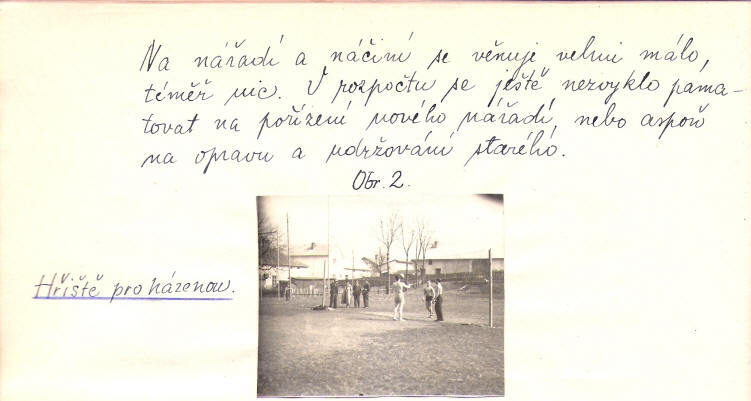 Na nářadí a náčiní se věnuje velmi málo,
téměř nic. V rozpočtu se ještě nezvyklo pama-
tovat na pořízení nového nářadí, nebo aspoň
na opravu a udržování starého.
Obr. 2.
Hřiště pro házenou.